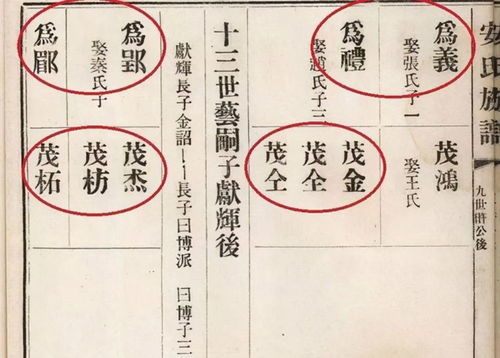 安氏族譜
九世滸公後
爲義
娶張氏子一
爲禮
娶趙氏子三
茂鴻
娶王氏
茂金
茂全
茂仝
十三世藝嗣子獻輝後
獻輝長子金詔——長子曰博派 曰博子三
爲郢
娶秦氏子
爲
茂杰
茂枋
茂柘